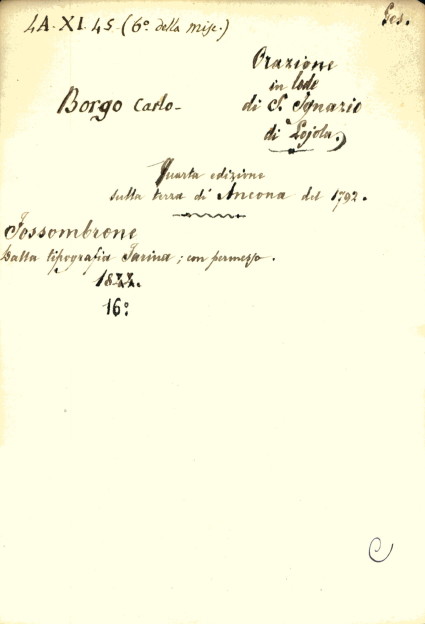 4A. XI. 45. (6º. della misc.)
Ges.
Orazione
in lode
Borgo Carlo- di S. Ignazio
di Lojola.
Quarta edizione
sulla terza di Ancona del 1792.
Fossombrone
Dalla tipografia Farina; con permesso.
16º:
C